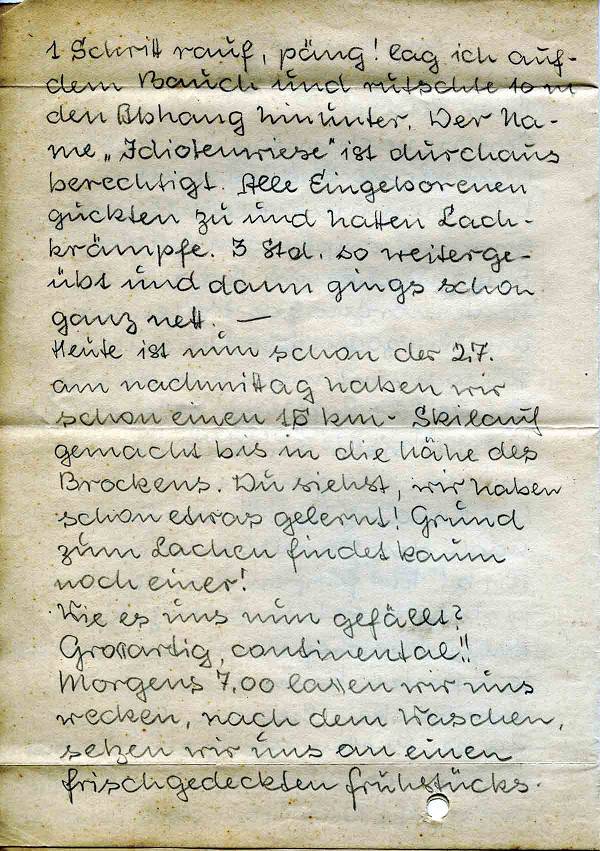 1 Schritt rauf, päng! lag ich auf-
dem Bauch und rutschte 10 m
den Abhang hinunter. Der Na-
me „Idiotenwiese" ist durchaus
berechtigt. Alle Eingeborenen
guckten zu und hatten Lach-
krämpfe. 3 Std. so weiterge-
übt und dann gings schon
ganz nett. —
Heute ist nun schon der 2.7.
am nachmittag haben wir
schon einen 15 km- Skilauf
gemacht bis in die Nähe des
Brockens. Du siehst, wir haben
schon etwas gelernt! Grund
zum Lachen findet kaum
noch einer!
Wie es uns nun gefällt?
Großartig, continental!!
Morgens 7.00 lassen wir uns
wecken, nach dem Waschen,
setzen wir uns an einen
frischgedeckten Frühstücks-